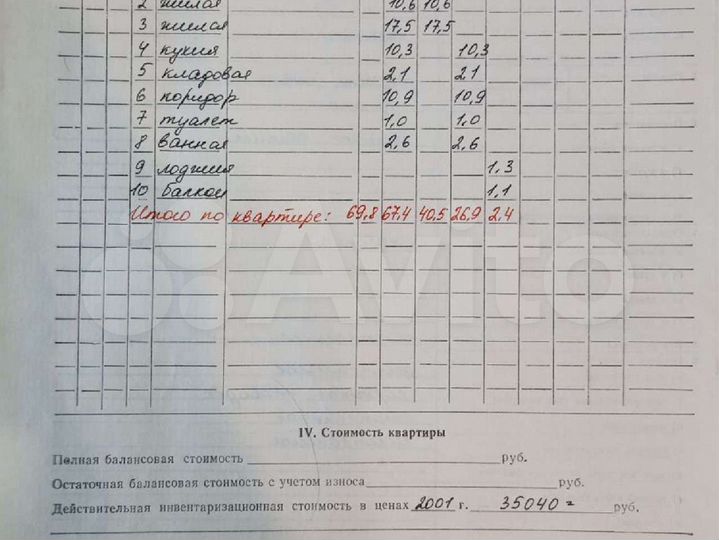 2 жилая 10,6 10,6
3 жилая 17,5 17,5
4 кухня 10,3 10,3
5 кладовая 2,1 2,1
6 коридор 10,9 10,9
7 туалет 1,0 1,0
8 ванная 2,6 2,6
9 лоджия 1,3
10 балкон 1,1
Итого по квартире: 69,8 67,4 40,5 26,9 2,4
Avito
IV. Стоимость квартиры
Полная балансовая стоимость руб.
Остаточная балансовая стоимость с учетом износа руб.
Действительная инвентаризационная стоимость в ценах 2001 г. 35040= руб.